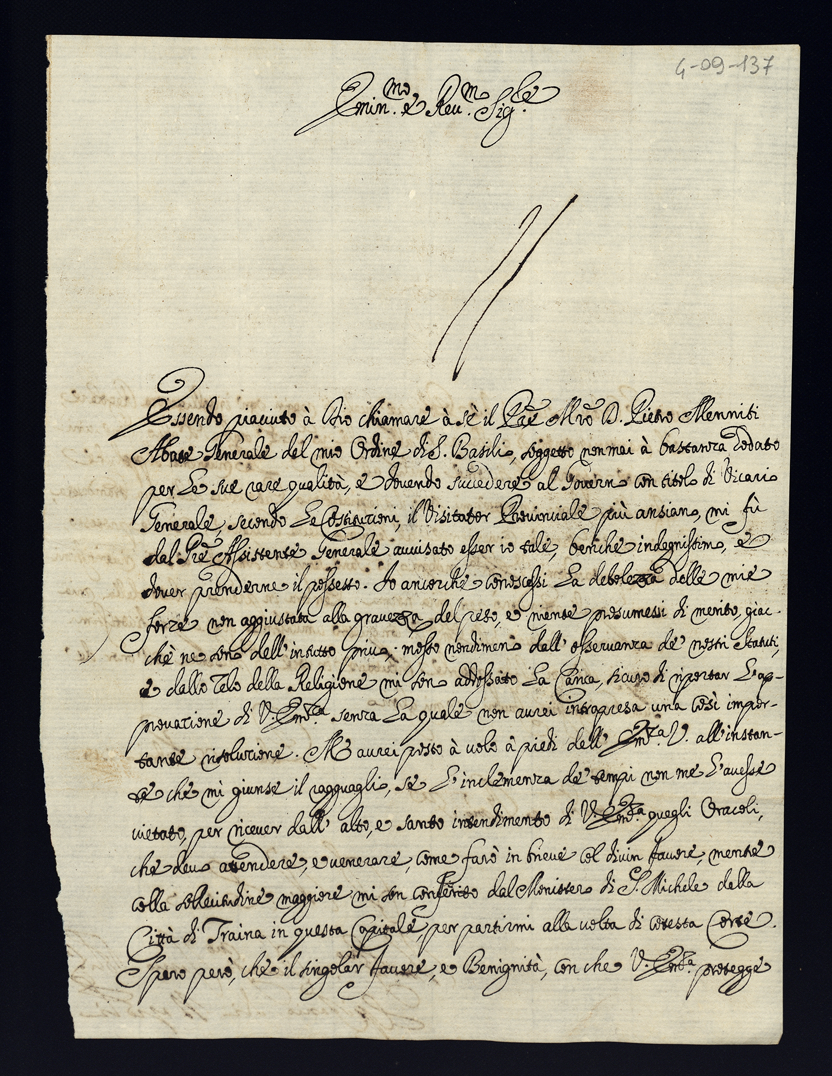 4-09-137
Emin.mo e Reu.mo Sig.re
Essendo piaciuto à Dio chiamare à sè il P̃re Mro D. Pietro Menniti
Abate Generale del mio Ordine di S. Basilio, soggetto non mai à bastanza lodato
per le sue rare qualità, e douendo succedere al Gouerno con titolo di Vicario
Generale, secondo le Costituzioni, il Visitator Prouinciale più anziano, mi fù
dal P̃re Assistente Generale auuisato esser io tale, benche indegnissimo, e
douer prenderne il possesso. Io ancorche conoscessi la debolezza delle mie
forze non aggiustata alla grauezza del peso, e niente presumessi di merito, giac-
chè ne son dell'intutto priuo, mosso nondimeno dall'osseruanza de' nostri Statuti,
e dallo Zelo della Religione mi son addossato la Carica, sicuro di riportar l'ap-
prouazione di V. Em.za senza la quale non aurei intrapresa una così impor-
tante risoluzione. M'aurei posto à volo à piedi dell'Em.za V. all'instan-
te che mi giunse il ragguaglio, se l'inclemenza de' tempi non me l'auesse
vietato, per riceuer dall'alto, e santo intendimento di V. Em.za quegli Oracoli,
che deuo attendere, e venerare, come farò in breue col diuin fauore, mentre
colla sollecitudine maggiore mi son conferito dal Monistero di S. Michele della
Città di Traina in questa Capitale, per partirmi alla volta di cotesta Corte.
Spero però, che il singolar fauore, e Benignità, con che V. Em.za protegge